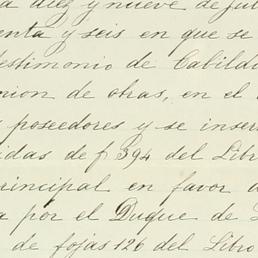 a diez y nueve de Jul
enta y seis en que se
testimonio de Cabild
nion de otras, en el
s poseedores y se inser
idas de f 394 del Libr
principal en favor d
a por el Duque de L
de fojas 126 del Libro